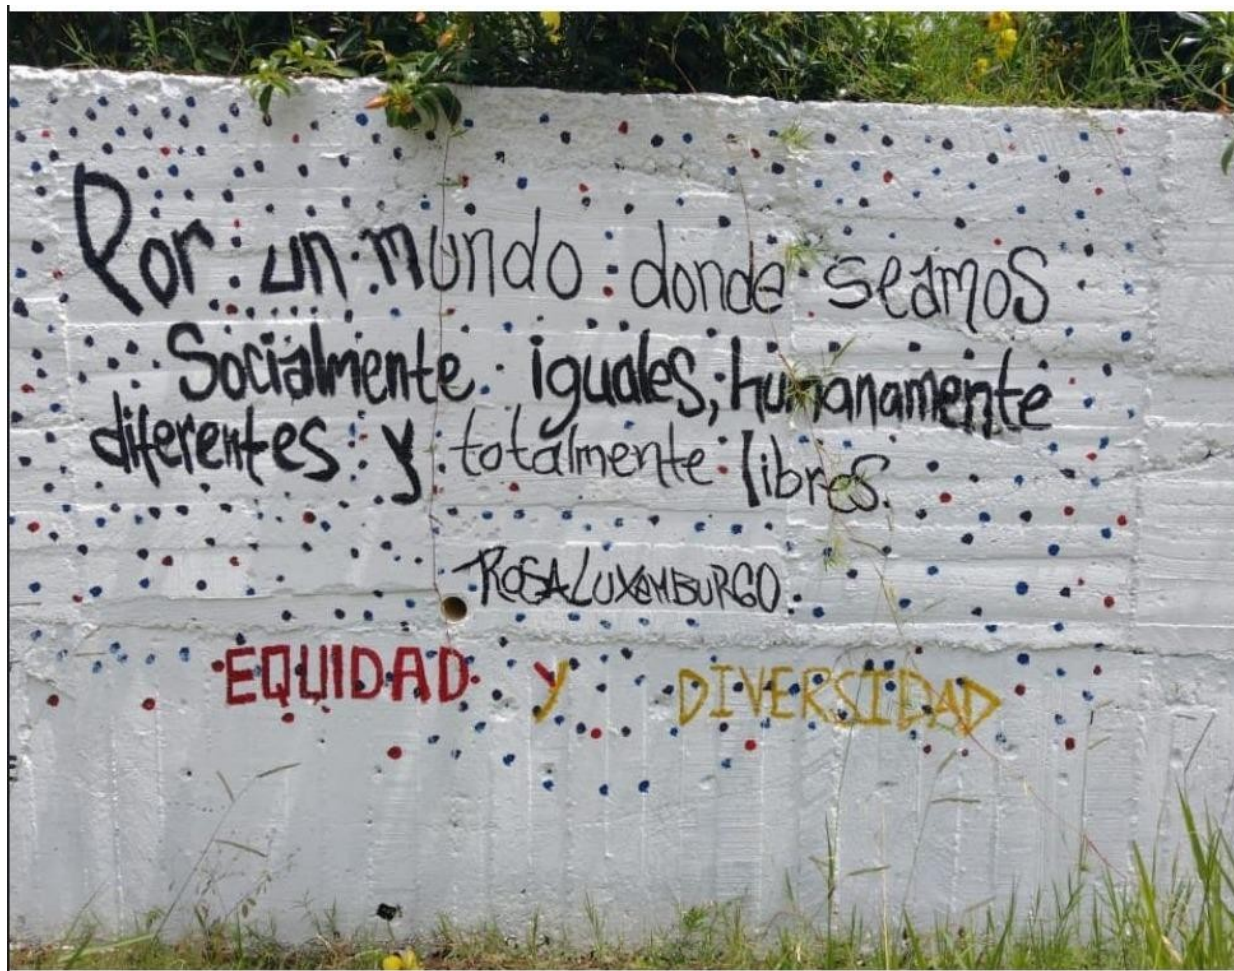 Por un mundo donde seamos
Socialmente iguales, humanamente
diferentes y totalmente libres.
ROSA LUXEMBURGO.
EQUIDAD Y DIVERSIDAD